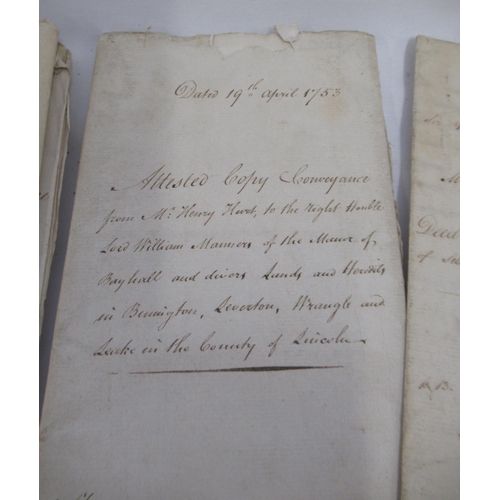 Dated 19th April 1753
Attested Copy Conveyance
from Mr. Henry Hurst, to the Right Honble
Lord William Manners of the Manor of
Rayhall and divers Lands and Heredits
in Bennington, Leverton, Wrangle and
Leake in the County of Lincoln
Deed
of